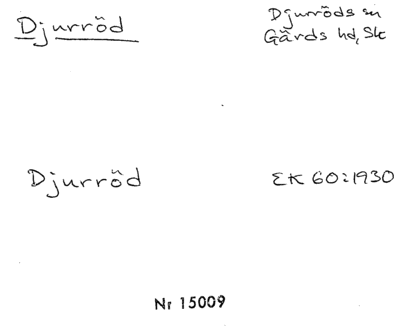 Djurröd
Djurröds sn
Gärds hd, Sk
Djurröd
EK 60:1930
Nr 15009